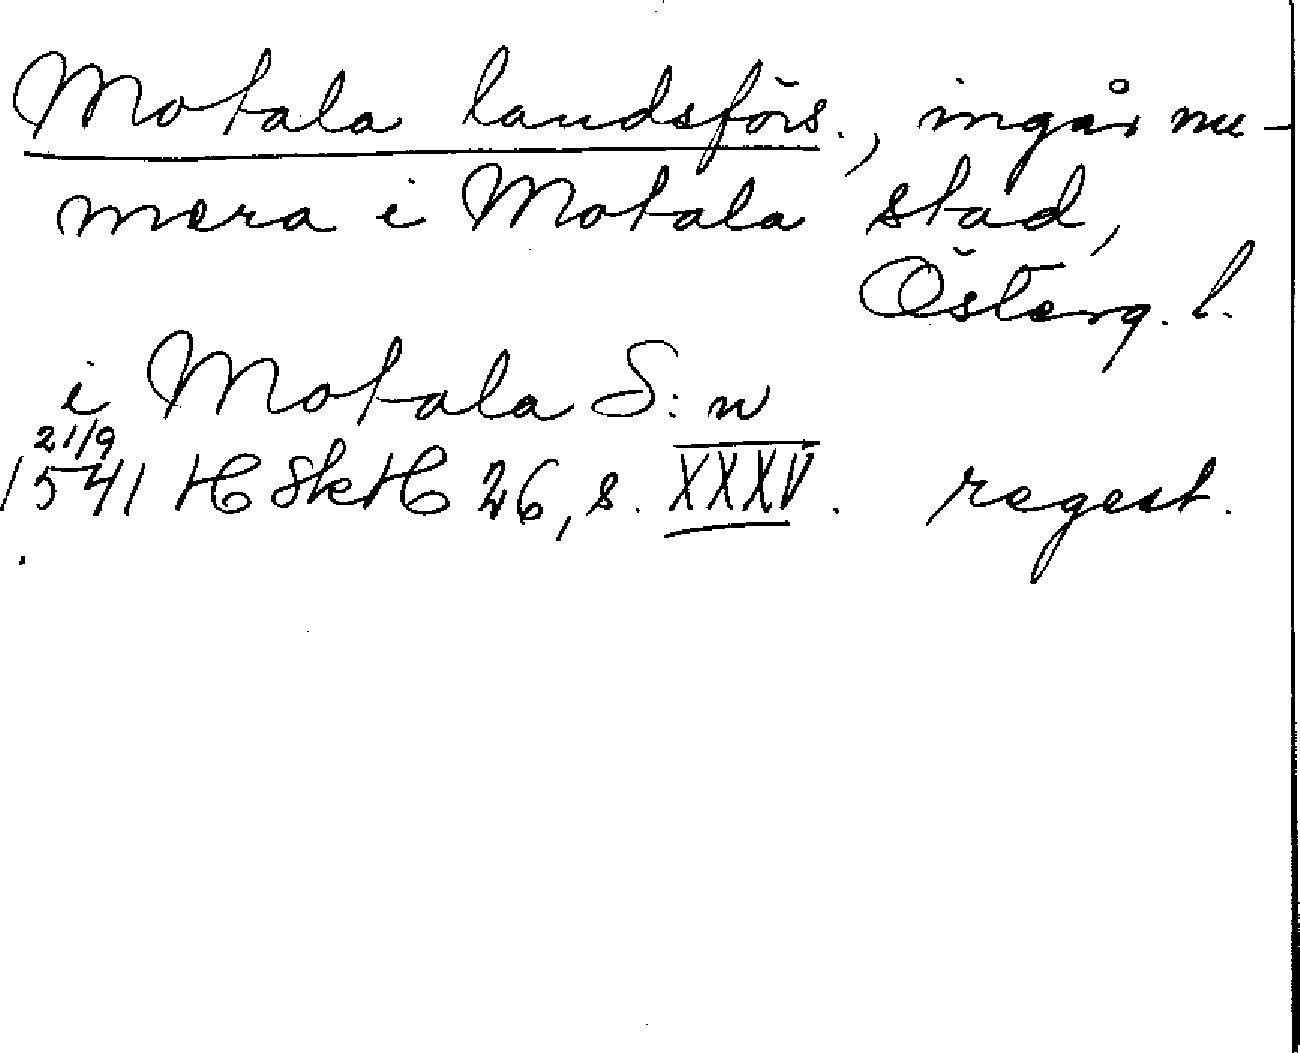 Motala landsförs., ingår nu-
mera i Motala stad,
Österg. l.
i Motala S:n
21/9
1541 HSkH 26, s. XXXV. regest.